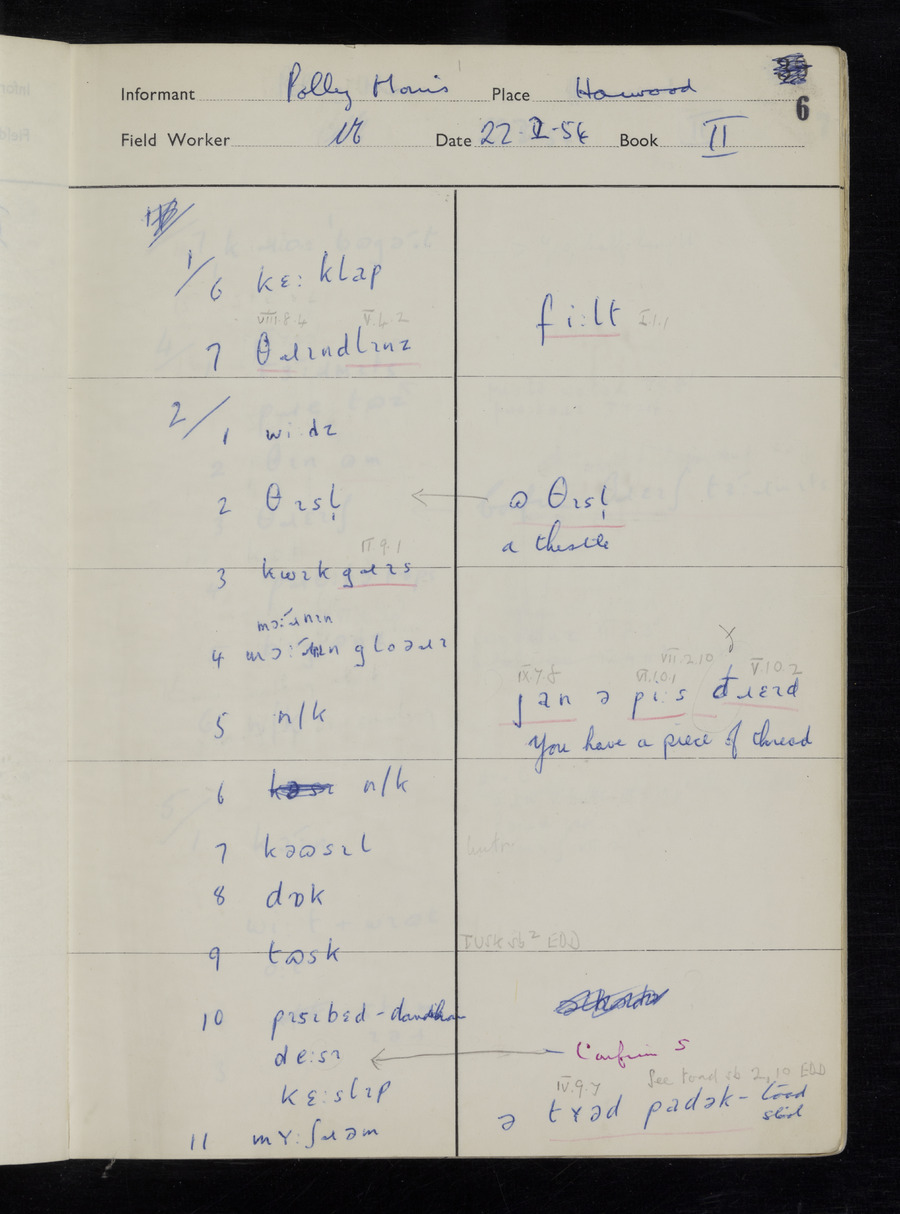 Informant Polly Place Harwood
6
Field Worker Date 22-I-54 Book II
1/6 kɛ: klap
fi:lt I.1.1
VIII.8.4 V.4.2
7
2/1 wi·dz
2 θɪsl̩
ɷ θɪsl̩
a thistle
II.9.1
3 kwɪk gɹɪs
mɔ:ʹɹnɪn
4
VII.2.10
IX.7.8 VI.10.1 V.10.2
5 n/k
jan ə pi:s đɹɛɪd
You have a piece of thread
6 n/k
7 kəɷsɪl
8 dɒk
9 tɷsk
TUSK sb² EDD
10 pɪsɪbɛd -
de:sɪ
Confirm s
kɛ:slɪp
See toad sb 2, 10 EDD
IV.9.7
ə tɤəd padək - toad
stool
11 mɤ:ʃɹəm